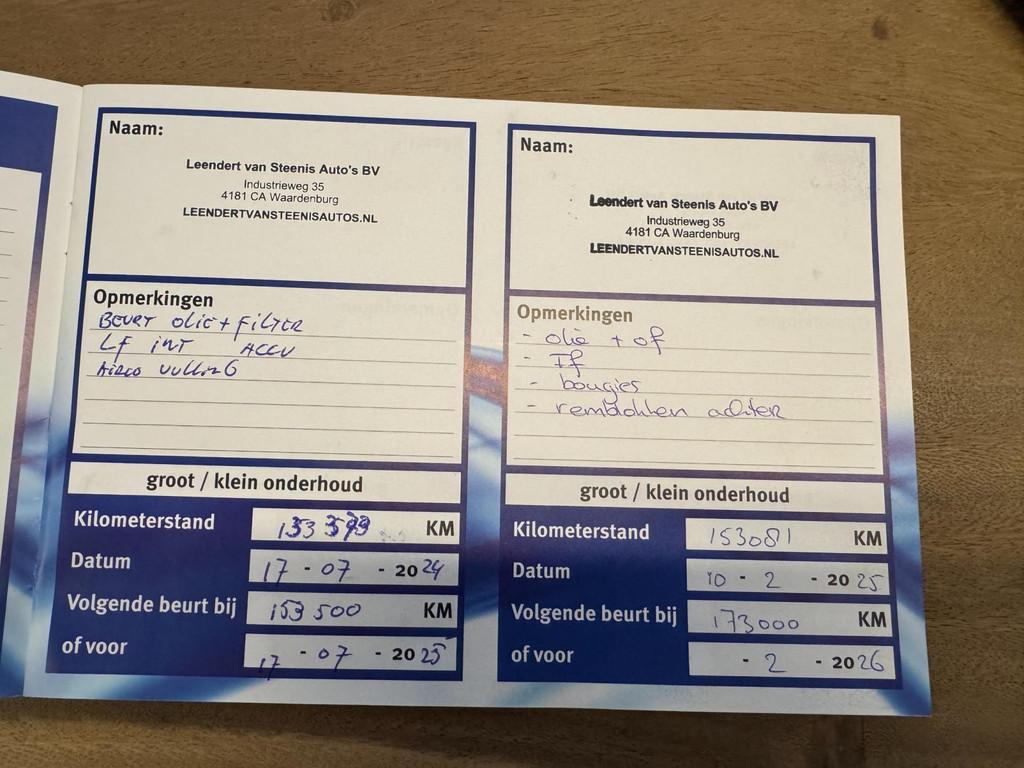 Naam:
Leendert van Steenis Auto's BV
Industrieweg 35
4181 CA Waardenburg
LEENDERTVANSTEENISAUTOS.NL
Opmerkingen
BEURT OLIE + FILTER
LF INT ACCU
AIRCO VULLING
groot / klein onderhoud
Kilometerstand 133 KM
Datum 17 - 07 - 2024
Volgende beurt bij 153 500 KM
of voor 17 - 07 - 2025
Naam:
Leendert van Steenis Auto's BV
Industrieweg 35
4181 CA Waardenburg
LEENDERTVANSTEENISAUTOS.NL
Opmerkingen
- olie + of
- If
- bougies
- remblokken achter
groot / klein onderhoud
Kilometerstand 153081 KM
Datum 10 - 2 - 2025
Volgende beurt bij 173000 KM
of voor - 2 - 2026